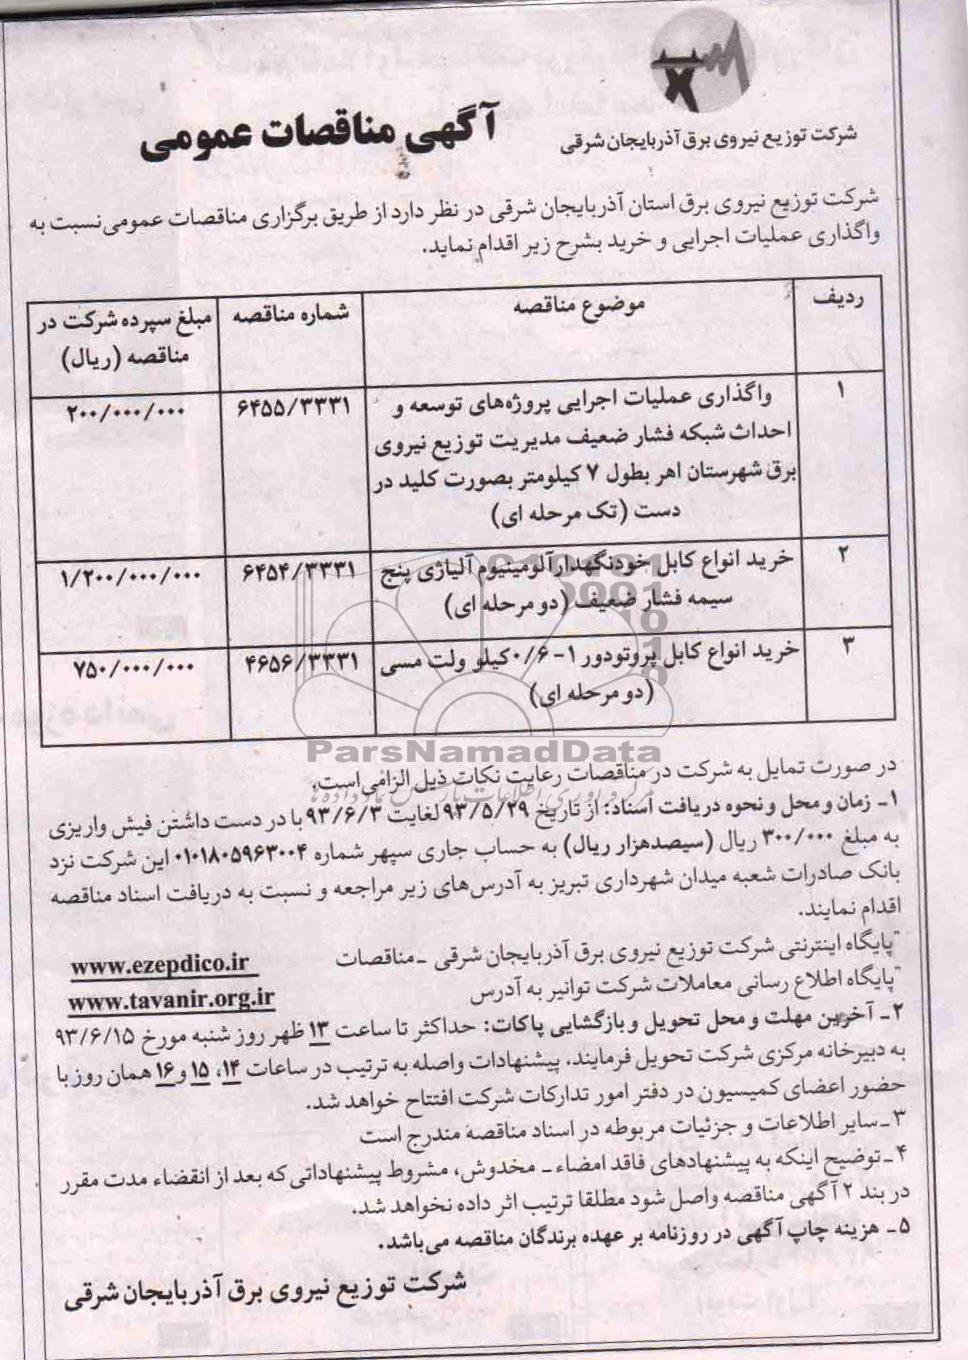 شرکت توزیع نیروی برق آذربایجان شرقی
آگهی مناقصات عمومی
شرکت توزیع نیروی برق استان آذربایجان شرقی در نظر دارد از طریق برگزاری مناقصات عمومی نسبت به
واگذاری عملیات اجرایی و خرید بشرح زیر اقدام نماید.
ردیف موضوع مناقصه شماره مناقصه مبلغ سپرده شرکت در
مناقصه (ریال)
۱ واگذاری عملیات اجرایی پروژه‌های توسعه و ۶۴۵۵/۳۳۳۱ ۲۰۰/۰۰۰/۰۰۰
احداث شبکه فشار ضعیف مدیریت توزیع نیروی
برق شهرستان اهر بطول ۷ کیلومتر بصورت کلید در
دست (تک مرحله ای)
۲ خرید انواع کابل خودنگهدار آلومینیوم آلیاژی پنج ۶۴۵۴/۳۳۳۱ ۱/۲۰۰/۰۰۰/۰۰۰
سیمه فشار ضعیف (دو مرحله ای)
۳ خرید انواع کابل پروتودور ۱-۰/۶ کیلو ولت مسی ۴۶۵۶/۳۳۳۱ ۷۵۰/۰۰۰/۰۰۰
(دو مرحله ای)
ParsNamadData
در صورت تمایل به شرکت در مناقصات رعایت نکات ذیل الزامی است.
۱- زمان و محل و نحوه دریافت اسناد: از تاریخ ۹۳/۵/۲۹ لغایت ۹۳/۶/۳ با در دست داشتن فیش واریزی
به مبلغ ۳۰۰/۰۰۰ ریال (سیصدهزار ریال) به حساب جاری سپهر شماره ۰۱۰۱۸۰۵۹۶۳۰۰۴ این شرکت نزد
بانک صادرات شعبه میدان شهرداری تبریز به آدرس‌های زیر مراجعه و نسبت به دریافت اسناد مناقصه
اقدام نمایند.
"پایگاه اینترنتی شرکت توزیع نیروی برق آذربایجان شرقی -مناقصات www.ezepdico.ir
"پایگاه اطلاع رسانی معاملات شرکت توانیر به آدرس www.tavanir.org.ir
۲- آخرین مهلت و محل تحویل و بازگشایی پاکات: حداکثر تا ساعت ۱۳ ظهر روز شنبه مورخ ۹۳/۶/۱۵
به دبیرخانه مرکزی شرکت تحویل فرمایند. پیشنهادات واصله به ترتیب در ساعات ۱۴، ۱۵ و ۱۶ همان روز با
حضور اعضای کمیسیون در دفتر امور تدارکات شرکت افتتاح خواهد شد.
۳-سایر اطلاعات و جزئیات مربوطه در اسناد مناقصه مندرج است
۴-توضیح اینکه به پیشنهادهای فاقد امضاء - مخدوش، مشروط پیشنهاداتی که بعد از انقضاء مدت مقرر
در بند ۲ آگهی مناقصه واصل شود مطلقا ترتیب اثر داده نخواهد شد.
۵- هزینه چاپ آگهی در روزنامه بر عهده برندگان مناقصه می‌باشد.
شرکت توزیع نیروی برق آذربایجان شرقی